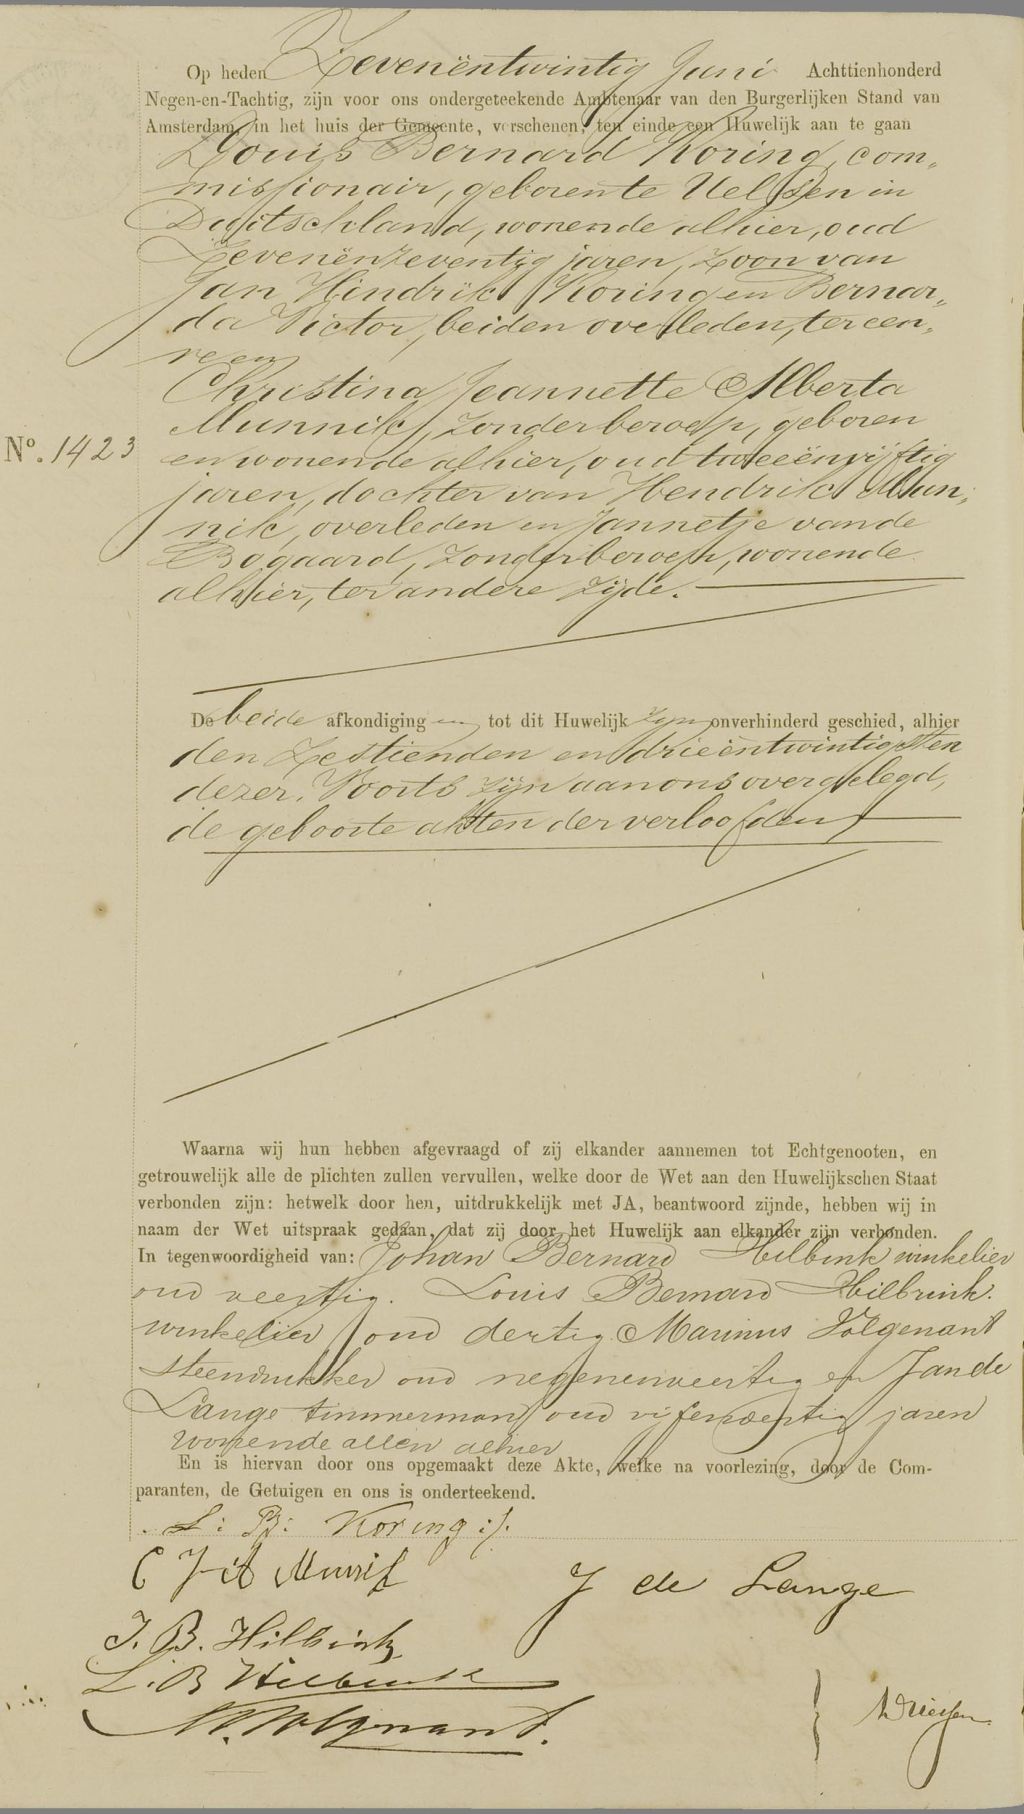 Op heden Zevenëntwintig Juni Achttienhonderd
Negen-en-Tachtig, zijn voor ons ondergeteekende Ambtenaar van den Burgerlijken Stand van
Amsterdam, in het huis der Gemeente, verschenen, ten einde een Huwelijk aan te gaan
Louis Bernard Koring, com„
missionair, geboren te Uelsen in
Duitschland, wonende alhier, oud
Zevenënzeventig jaren, Zoon van
Jan Hindrik Koring en Bernar„
da Victor, beiden overleden, ter een„
re en
Christina Jeannette Alberta
Munnik, zonder beroep, geboren
No. 1423
en wonende alhier, oud tweeënvijftig
jaren, dochter van Hendrik Mun„
nik, overleden en Jannetje van de
Bogaard, zonder beroep, wonende
alhier, ter andere zijde.
De beide afkondigingen tot dit Huwelijk zijn onverhinderd geschied, alhier
den Zestienden en drieëntwintigsten
dezer. Voorts zijn aan ons overgelegd,
de geboorte akten der verloofden
Waarna wij hun hebben afgevraagd of zij elkander aannemen tot Echtgenooten, en
getrouwelijk alle de plichten zullen vervullen, welke door de Wet aan den Huwelijkschen Staat
verbonden zijn: hetwelk door hen, uitdrukkelijk met JA, beantwoord zijnde, hebben wij in
naam der Wet uitspraak gedaan, dat zij door het Huwelijk aan elkander zijn verbonden.
In tegenwoordigheid van: Johan Bernard Hilbink winkelier
oud veertig. Louis Bernard Hilbrink.
winkelier oud dertig Marinus Volgenant
steendrukker oud negenenveertig en Jan de
Lange timmerman oud vijfenveertig jaren
wonende allen alhier
En is hiervan door ons opgemaakt deze Akte, welke na voorlezing, door de Com-
paranten, de Getuigen en ons is onderteekend.
L: B: Koring
C J A Munnik
J de Lange
J. B. Hilbink
L. B Hilbrink
M. Volgenant.